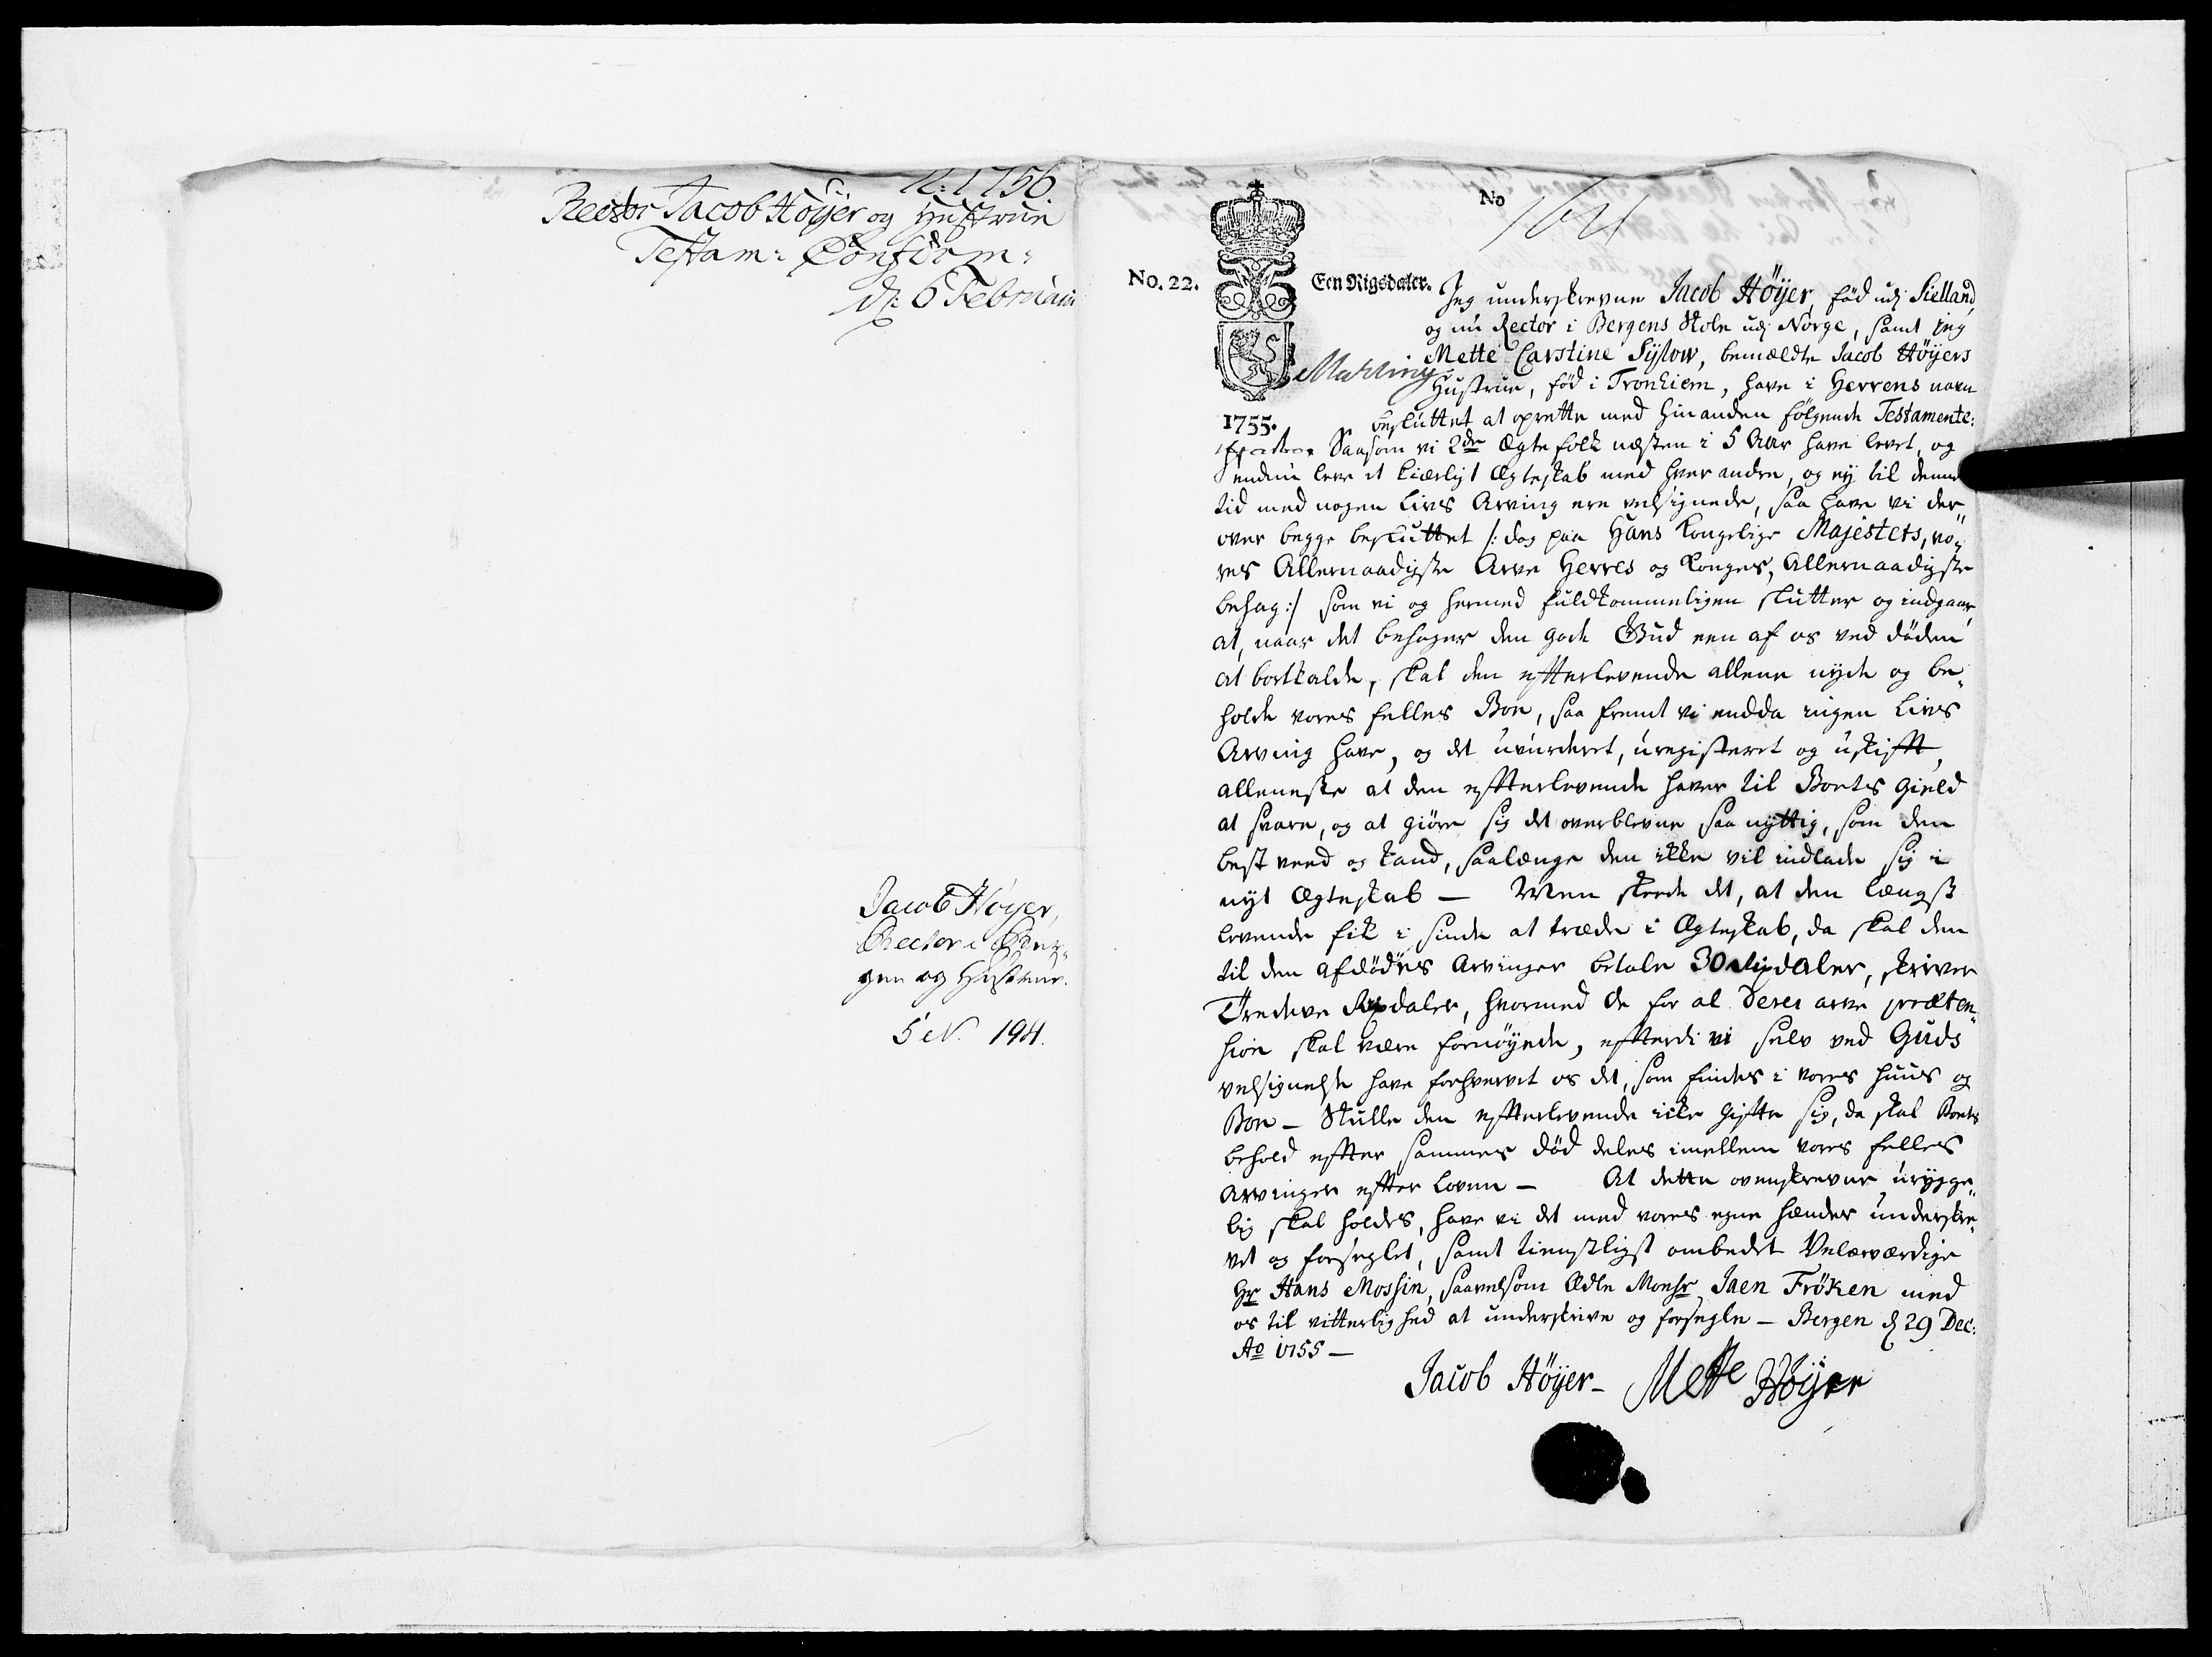 N: 1756
Rector Jacob Höyer og Hustrue
Testam: Confirm:
d: 6 Februarii
Jacob Höyer,
Rector i Ber-
gen og Hustrue.
5 N. 194.
No
No. 22.
Een Rigsdaler.
1755.
Jeg underskrevne Jacob Höÿer, fød udj Sielland,
og nu Rector i Bergens Skole udj Norge, samt jeg
Mette Carstine Sÿlow, bemældte Jacob Höÿers
Hustrue, fød i Tronhiem, have i Herrens navn
besluttet at oprette med hinanden følgende Testamente:
Saasom vi 2de Ægtefolk næsten i 5 Aar have levet, og
endnu leve et kierligt Ægteskab med hver andre, og ej til denne
tid med nogen Livs Arving ere velsignede, saa have vi der-
over begge besluttet /: dog paa Hans Kongelige Majestets, vo-
res Allernaadigste Arve Herres og Konges, Allernaadigste
behag :/ som vi og hermed fuldkommeligen slutter og indgaar,
at, naar det behager den gode Gud een af os ved døden
at bortkalde, skal den efterlevende allene nyde og be-
holde vores felles Boe, saa fremt vi endda ingen Livs
Arving have, og det uvurderet, uregisteret og uskifft,
alleneste at den effterlevende haver til Boets gield
at svare, og at giøre sig det overblevne saa nyttig, som den
best veed og kand, saalænge den ikke vil indlade sig i
nyt Ægteskab — Men skeede det, at den længst
levende fik i sinde at træde i Ægteskab, da skal den
til den afdødes Arvinger betale 30 Rixdaler, skriver
Tredeve Rixdaler, hvormed de for al deres arve præten-
sion skal være fornøyede, effterdi vi selv ved Guds
velsignelse have forhvervet os det, som findes i vores huus og
Boe — Skulle den effterlevende icke giffte sig, da skal Boets
behold effter sammes død deles imellem vores felles
Arvinger effter loven — At dette ovenskrevne urygge-
lig skal holdes, have vi det med vores egne hænder underskre-
vet og forseglet, samt tienstligst ombedet Velærværdige
Hr Hans Mossin, saavelsom Ædle Monsr Jaen Fröken med
os til vitterlighed at underskrive og forsegle — Bergen d 29 Dec:
Ao 1755 —
Jacob Höÿer — Mette Höÿer